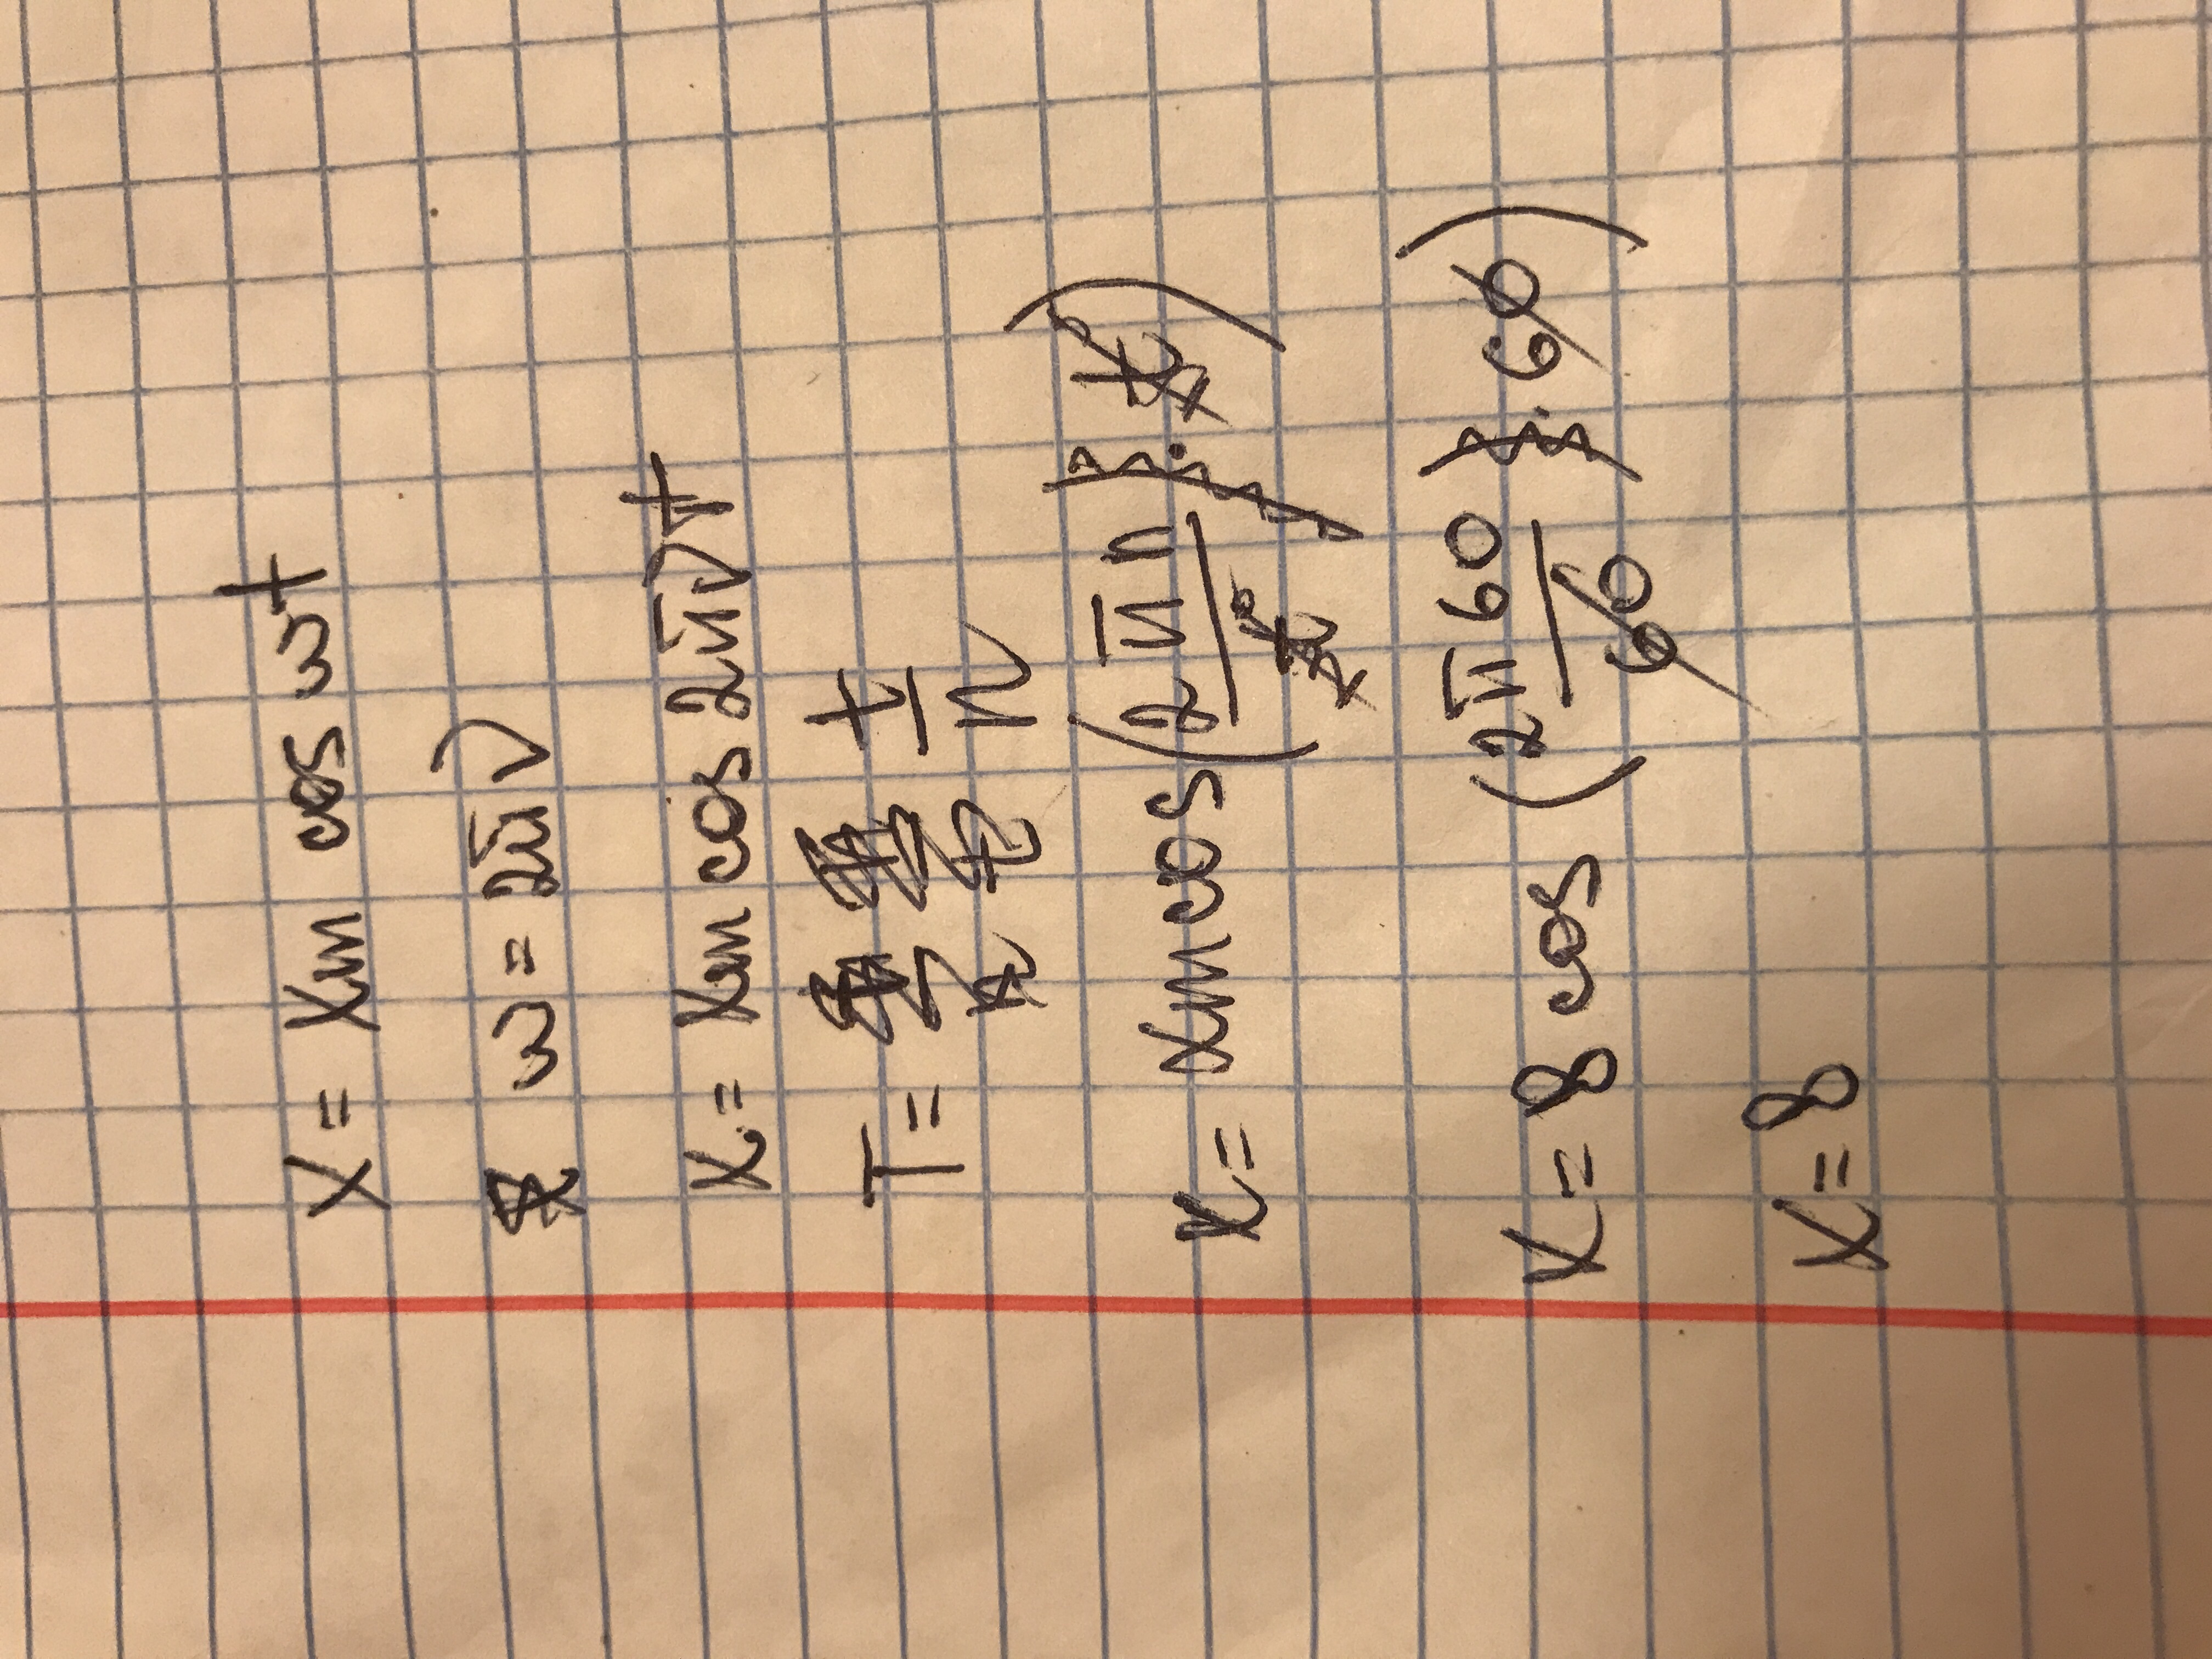 x = xm cos ωt
ω = 2πν
x = xm cos 2πνt
T = t/n
x = xm cos (2πn/t · t)
x = 8 cos (2π60/60 · 60)
x = 8